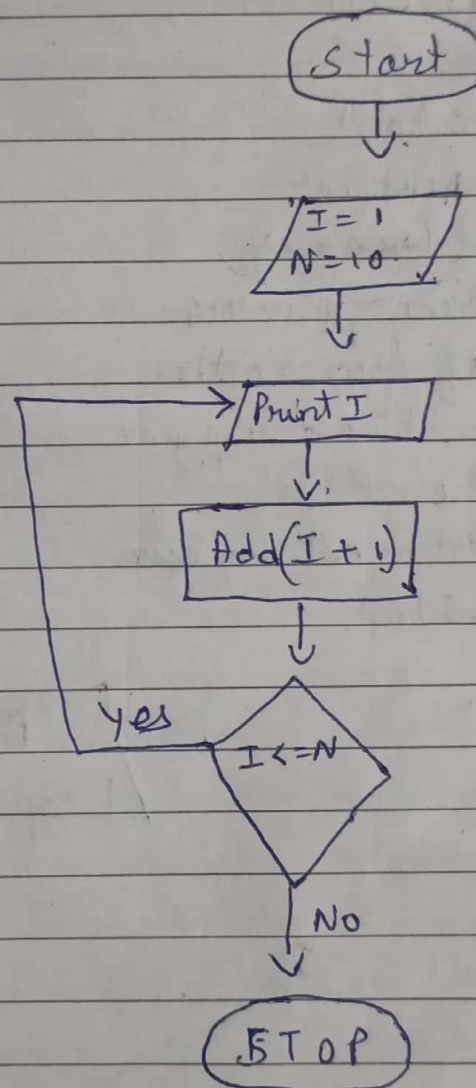 Start
I = 1
N = 10
Print I
Add(I + 1)
Yes
I <= N
No
STOP